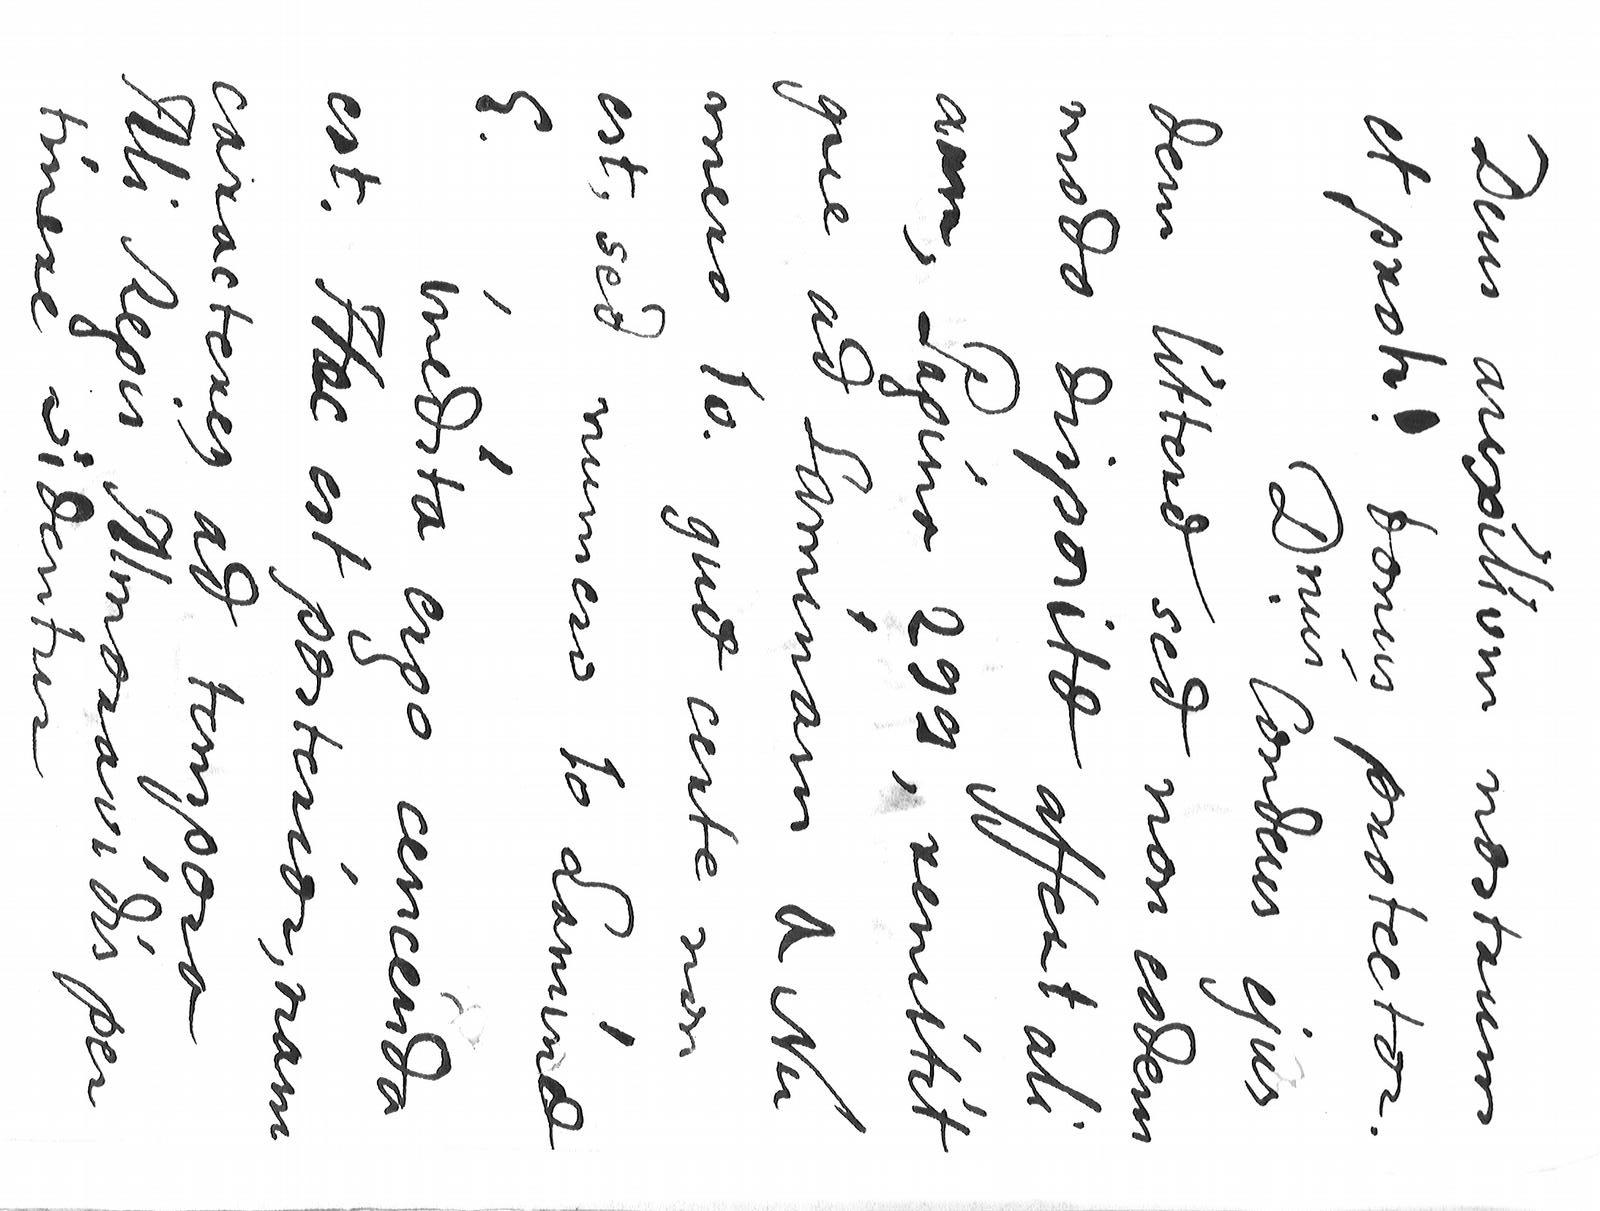 Deus auxilium nostrum
et proh! bonus protector.
Dnus Condeus ejus
dem sed non eodem
modo affert ali
am, Pagina 299, remitit
que ad Laminam A Nu
mero 10. quod certe non
est, sed numero 10 Lamina
inedita ergo cencenda
est. Hac est posterior, nam
caracteres ad tempora
Ali Regis Almoravidis per
tinere videntur